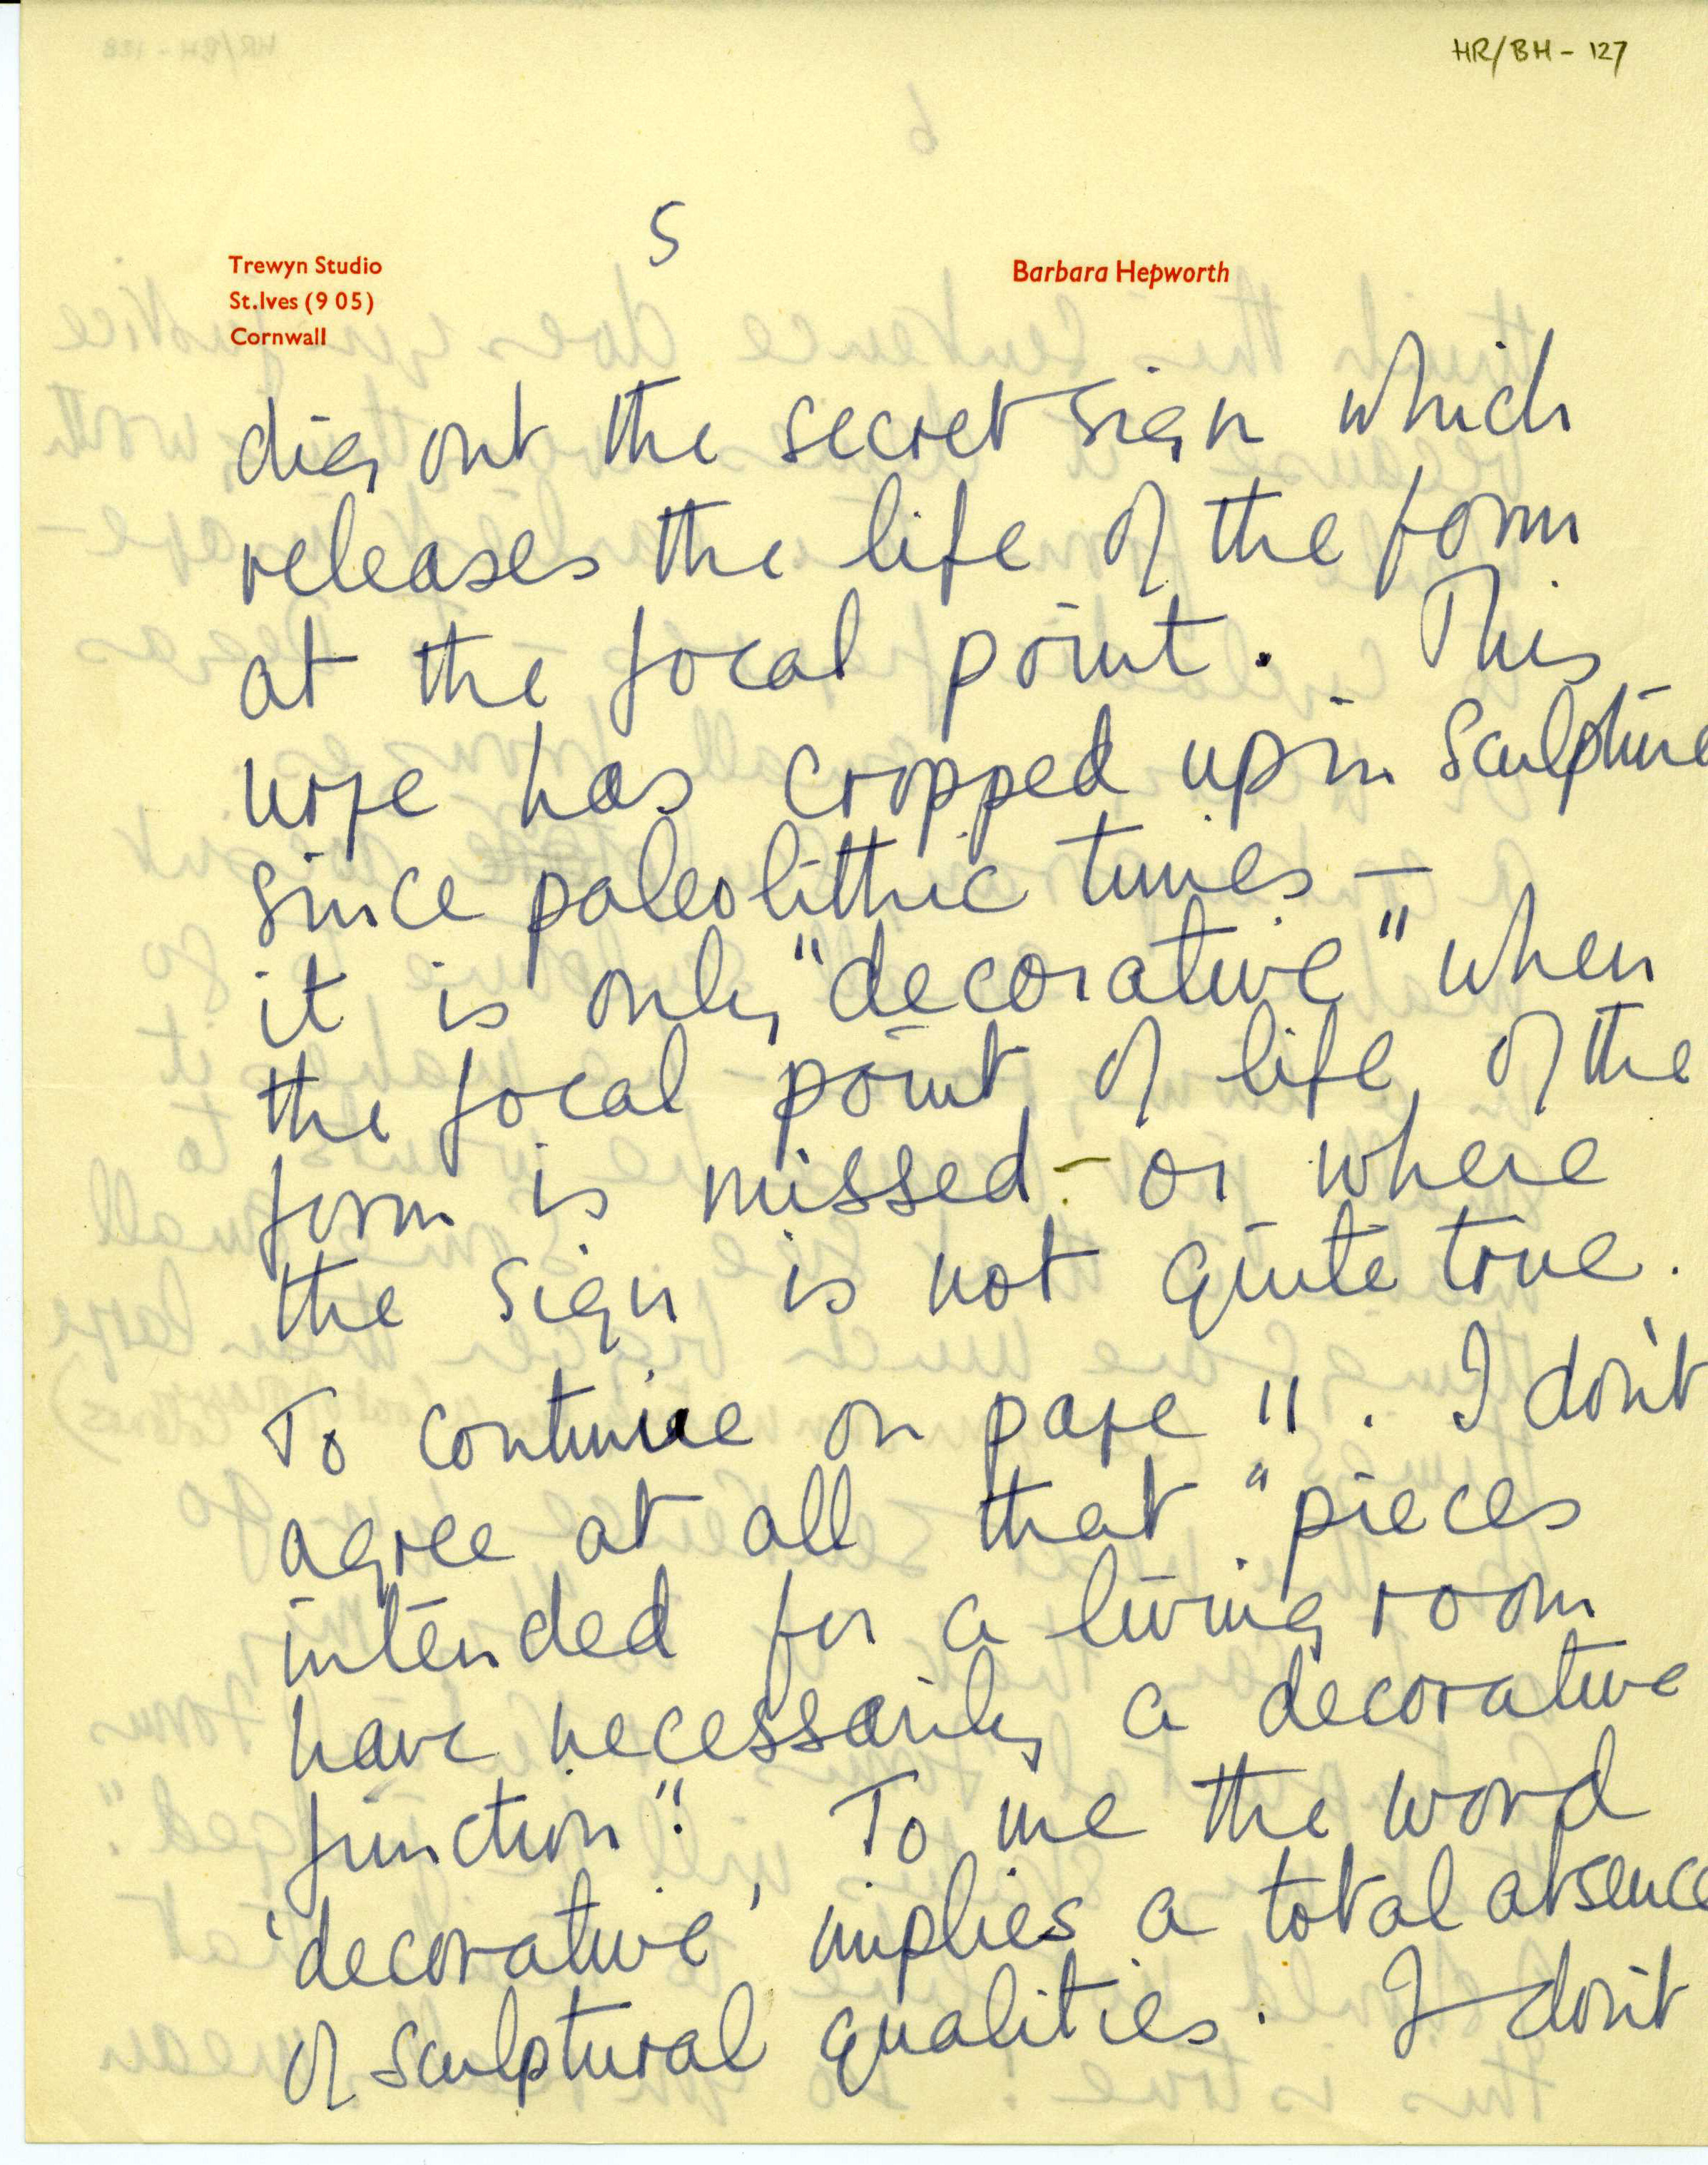 HR/BH - 127
5
Trewyn Studio
St.Ives (9 05)
Cornwall
Barbara Hepworth
dig out the secret sign which
releases the life of the form
at the focal point. This
urge has cropped up in Sculpture
since paleolithic times —
it is only "decorative" when
the focal point of life of the
form is missed - or where
the sign is not quite true.
To continue on page 11. I don't
agree at all that "pieces
intended for a living room
have necessarily a decorative
function". To me the word
'decorative' implies a total absence
of sculptural qualities. I don't